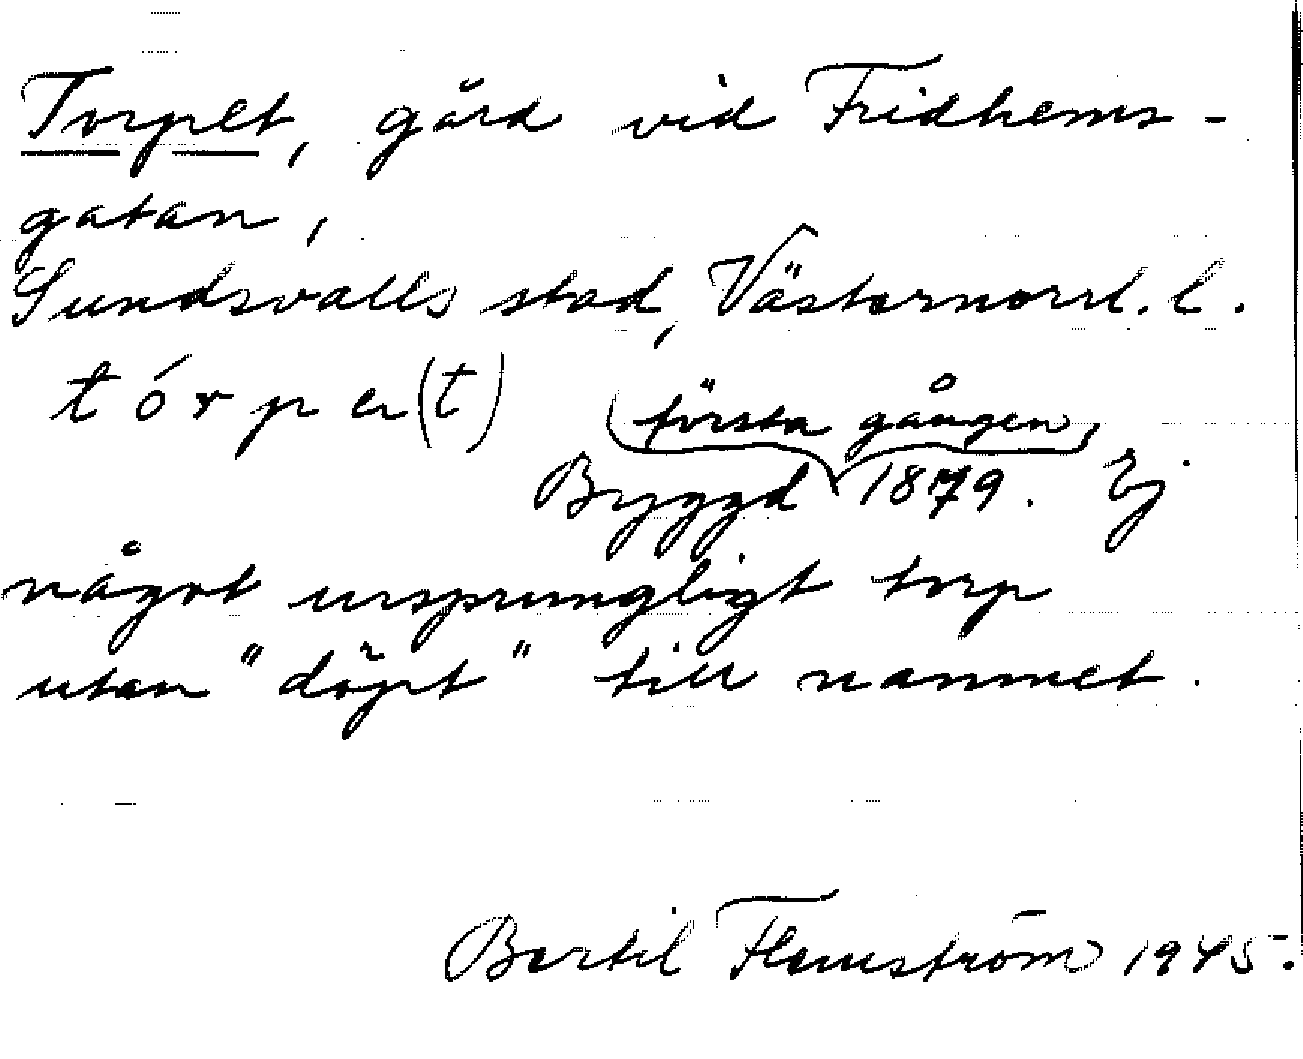 Torpet, gård vid Fridhems-
gatan,
Sundsvalls stad, Västernorrl. l.
tórpe(t)
första gången,
Byggd 1879. Ej
något ursprungligt torp
utan "döpt" till namnet.
Bertil Flemström 1945.